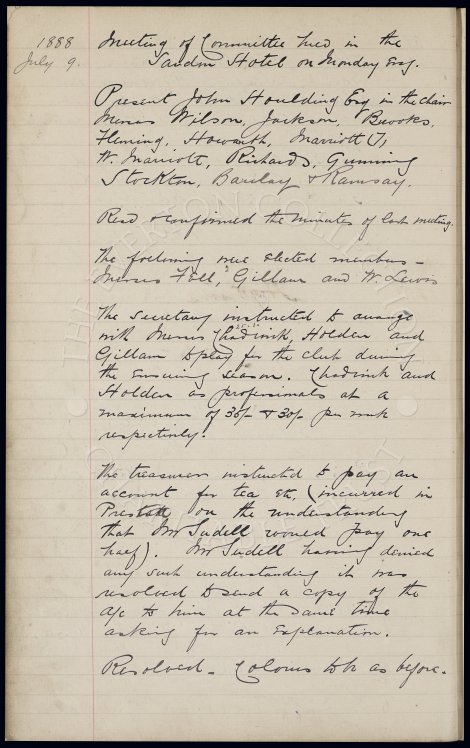 1888
July 9.
Meeting of Committee held in the
Sandon Hotel on Monday Evg.
Present John Houlding Esq in the Chair
Messrs Wilson, Jackson, Brooks,
Fleming, Howarth, Marriott (J),
W. Marriott, Richards, Gunning
Stockton, Barclay & Ramsay.
Read & confirmed the minutes of last meeting.
The following were elected members –
Messrs Fell, Gillam and W. Lewis
The Secretary instructed to arrange
with Messrs Chadwick, Holden and
Gillam to play for the club during
the ensuing season. Chadwick and
Holden as professionals at a
maximum of 35/- & 30/- per week
respectively.
The treasurer instructed to pay an
account for tea etc, (incurred in
Preston on the understanding
that Mr Sudell would pay one
half). Mr Sudell having denied
any such understanding it was
resolved to send a copy of the
a/c to him at the same time
asking for an explanation.
Resolved – Colours to be as before.
THE EVERTON COLLECTION